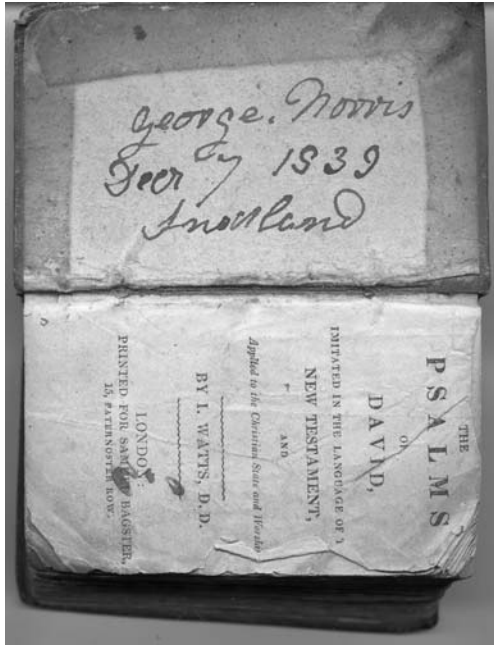 George. Norris
Decr 7 1839
Snodland
THE
PSALMS
OF
DAVID,
IMITATED IN THE LANGUAGE OF
NEW TESTAMENT,
AND
Applied to the Christian State and Worship
BY I. WATTS, D. D.
LONDON:
PRINTED FOR SAMUEL BAGSTER,
15, PATERNOSTER ROW.